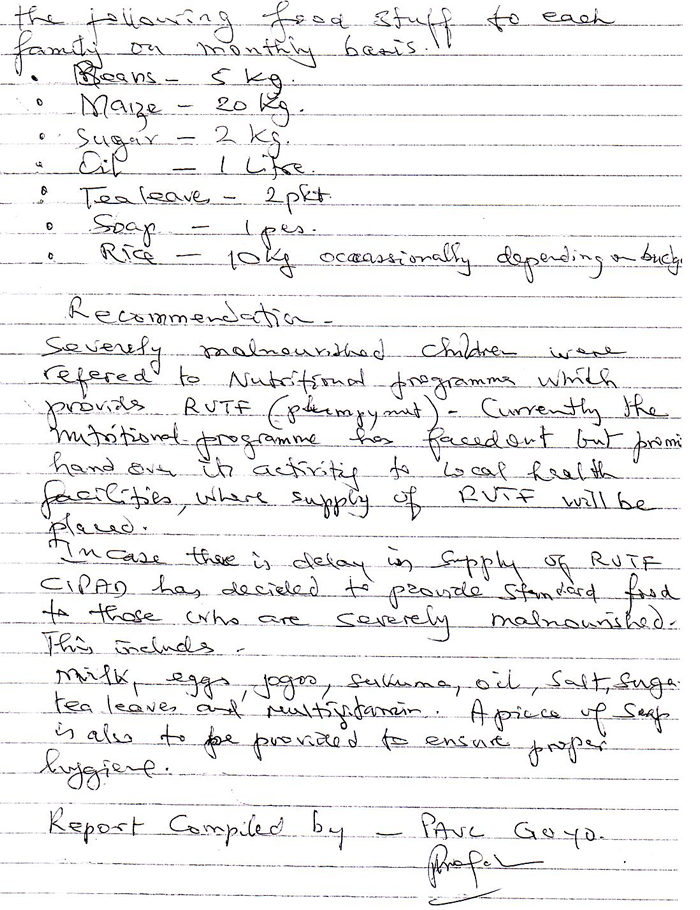 the following food stuff to each
family on monthly basis.
• Beans – 5 kg.
• Maize – 20 kg.
• Sugar – 2 kg.
• Oil – 1 Litre.
• Tea leave – 2 pkt
• Soap – 1 pes.
• Rice – 10 kg occassionally depending on budg
Recommendation –
Severely malnourished children were
refered to Nutritional programme which
provids RUTF (plumpynut) – Currently the
nutritional programme has faced out but promi
hand over its activity to local health
facilities, where supply of RUTF will be
placed.
Incase there is delay in supply of RUTF
CIPAD has decided to provide standard food
to those who are severely malnourished.
This includs –
Milk, eggs, jogoo, sukuma, oil, salt, suga
tea leaves and multivitamin. A piece of soap
is also to be provided to ensure proper
hygiene.
Report Compiled by – PAUL Goyo.